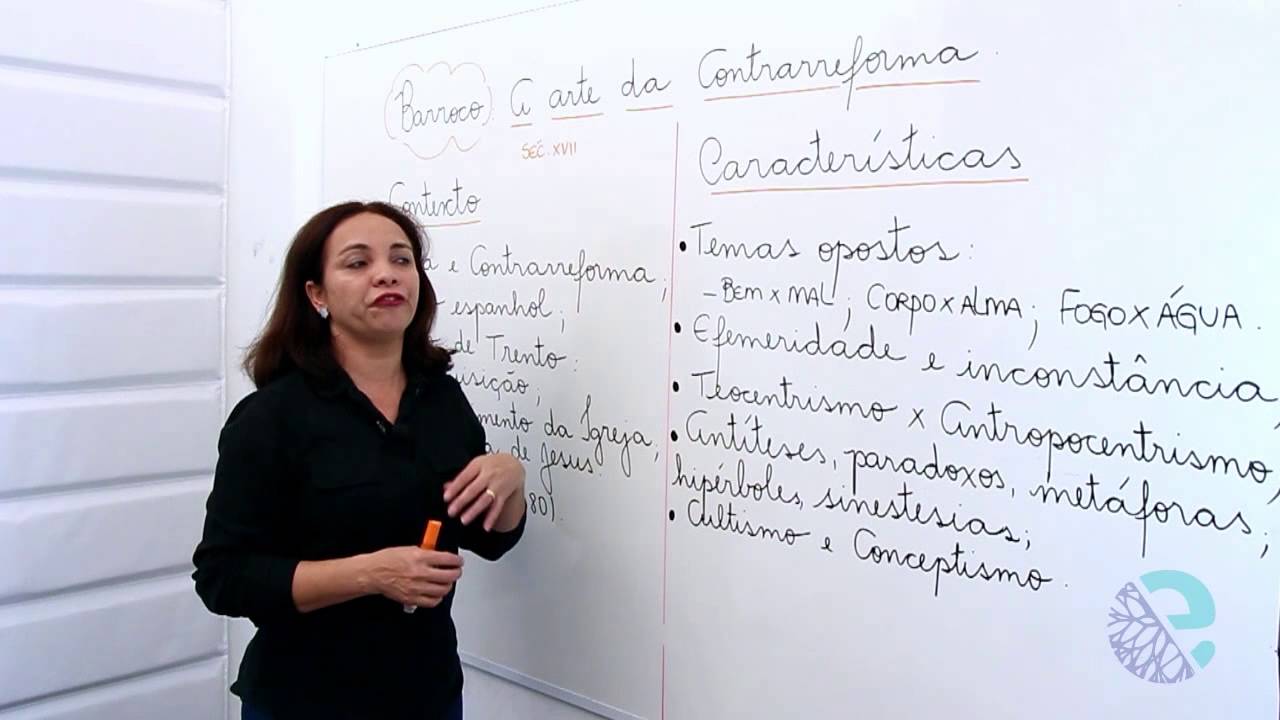 Barroco: A arte da Contrarreforma.
SÉC. XVII
Contexto
e Contrarreforma;
espanhol;
de Trento:
da Igreja,
de Jesus.
80).
Características
• Temas opostos:
- BEM x MAL; CORPO x ALMA; FOGO x ÁGUA.
• Efemeridade e inconstância
• Teocentrismo x Antropocentrismo,
• Antíteses, paradoxos, metáforas,
hipérboles, sinestesias;
• Cultismo e Conceptismo.
e